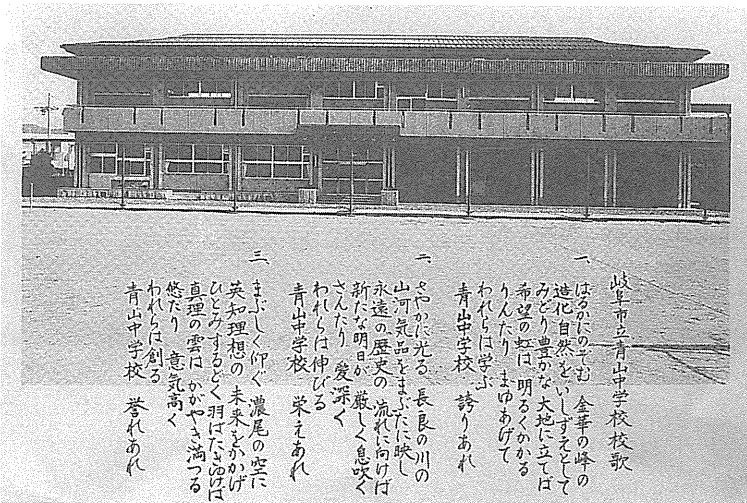 岐阜市立青山中学校校歌
一、はるかにのぞむ 金華の峰の
造化自然を いしずえとして
みどり豊かな 大地に立てば
希望の虹は 明るくかかる
りんたり まゆあげて
われらは学ぶ
青山中学校 誇りあれ
二、さやかに光る 長良の川の
山河気品を まぶたに映し
永遠の歴史の 流れに向けば
新たな明日が 厳しく息吹く
さんたり 愛深く
われらは伸びる
青山中学校 栄えあれ
三、まぶしく仰ぐ 濃尾の空に
英知理想の 未来をかかげ
ひとみするどく 羽ばたきゆけば
真理の雲は かがやき満つる
悠だり 意気高く
われらは創る
青山中学校 誉れあれ